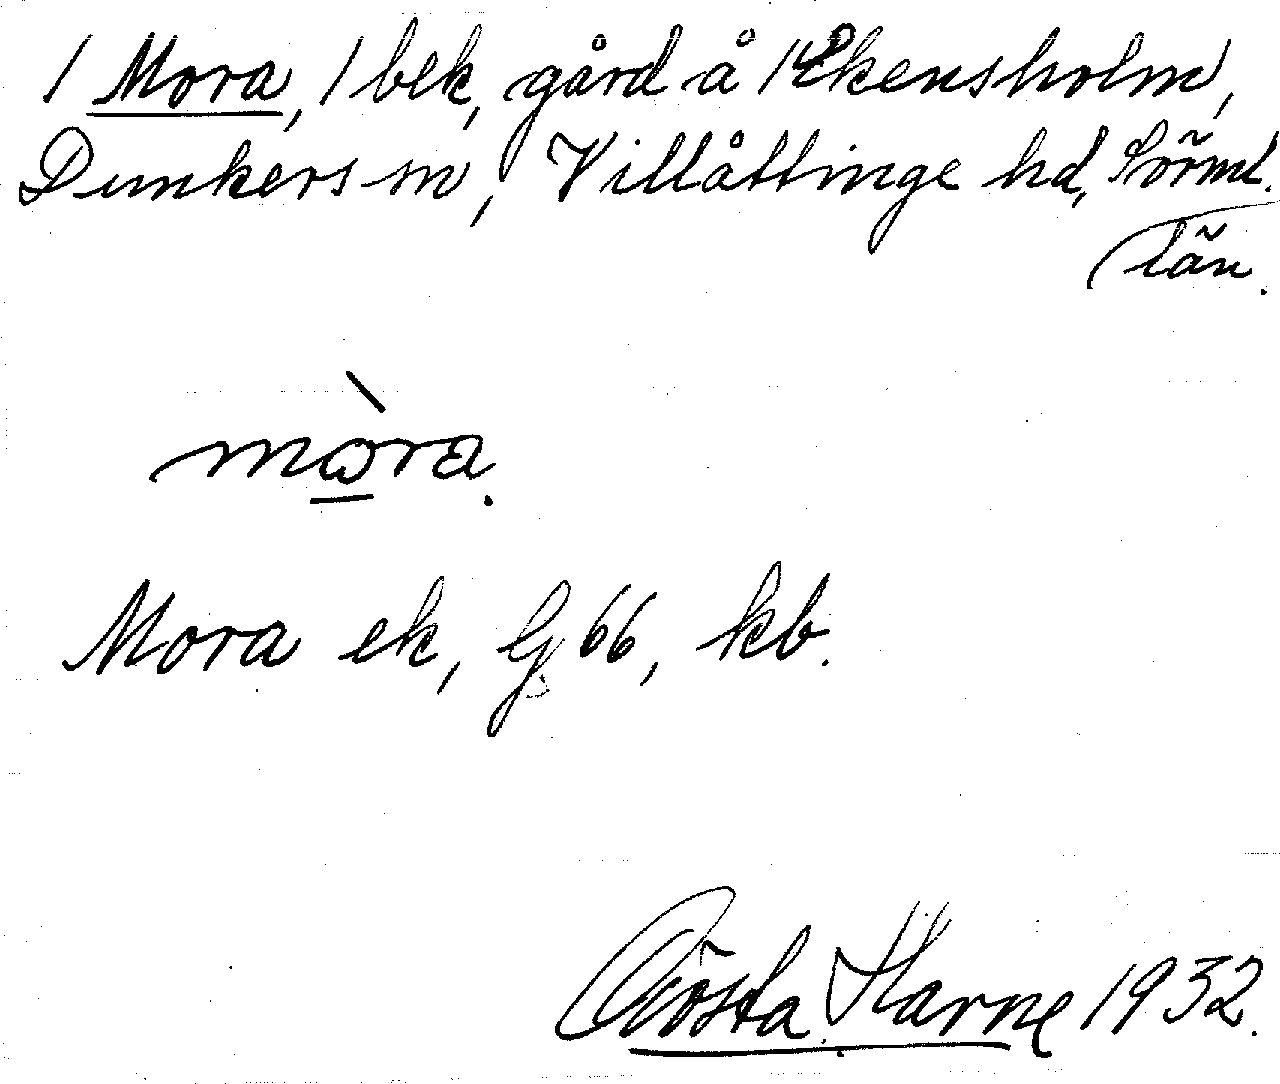 / Mora, / bek, gård å / Ekensholm,
Dunkers sn, Villåttinge hd, Sörml.
län.
mòra.
Mora ek, G 66, kb.
Gösta Harne 1932.